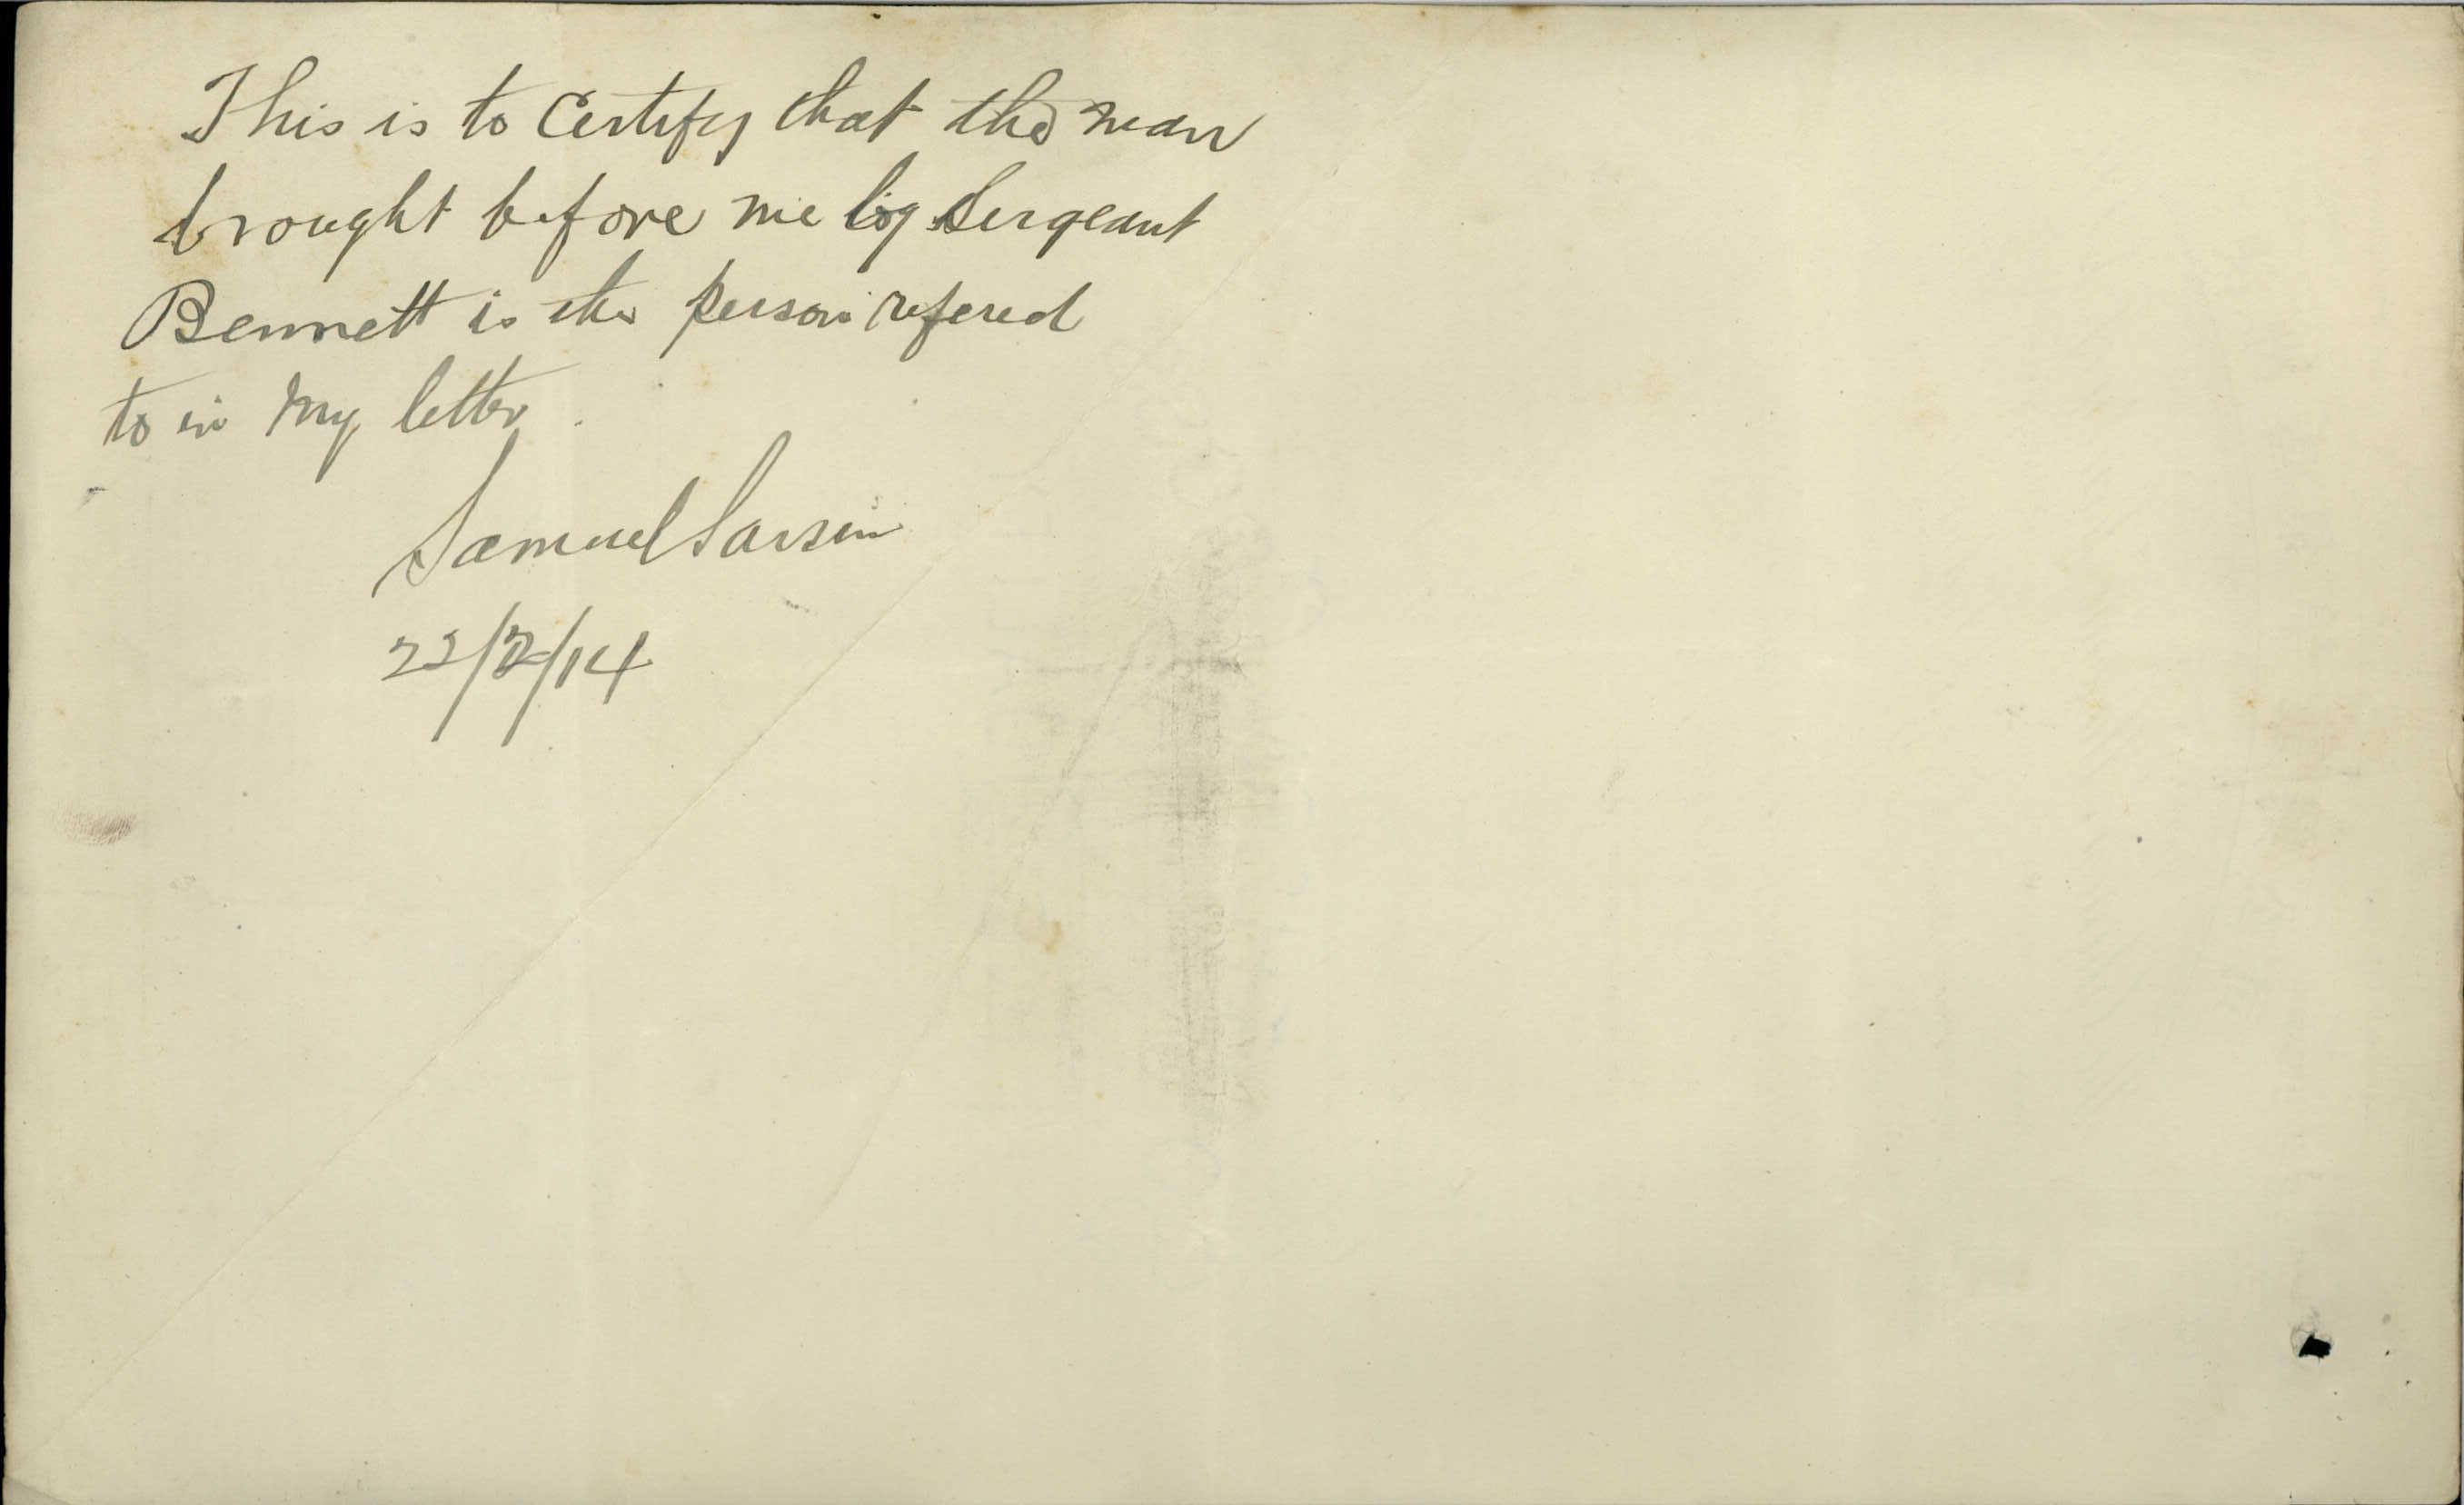 This is to Certify that the man
brought before me by Sergeant
Bennett is the person refered
to in my letter.
Samuel Larsen
22/2/14